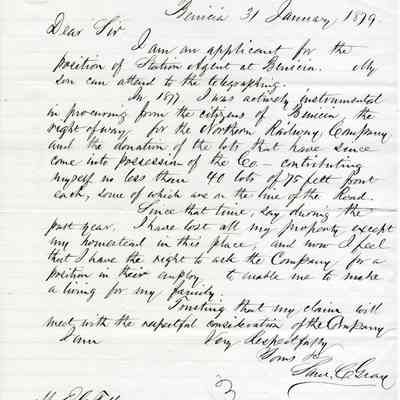 Benicia 31 January 1879.
Dear Sir
I am an applicant for the
position of Station Agent at Benicia. My
son can attend to the telegraphing.
In 1877 I was actively instrumental
in procuring from the citizens of Benicia the
right of way for the Northern Railway Company
and the donation of the lots that have since
come into possession of the Co — contributing
myself no less than 40 lots of 75 feet front
each, some of which are on the line of the Road.
Since that time, say during the
past year, I have lost all my property except
my homestead in this place, and now I feel
that I have the right to ask the Company for a
position in their employ to enable me to make
a living for my family.
Trusting that my claim will
meet with the respectful consideration of the Company
I am Very Respectfully
Yours
C Gray